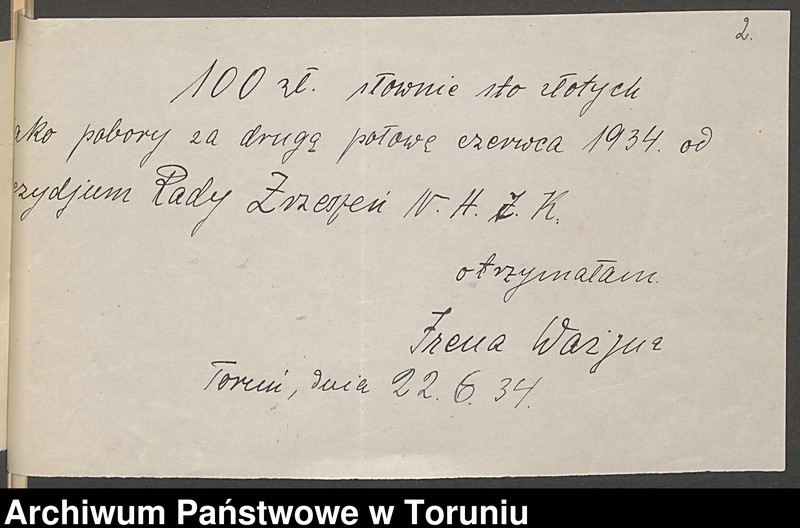 2.
100 zł. słownie sto złotych
ako pobory za drugą połowę czerwca 1934. od
ezydjum Rady Zrzeszeń N. H. Z. K.
otrzymałam.
Irena Ważyna
Toruń, dnia 22. 6. 34.
Archiwum Państwowe w Toruniu